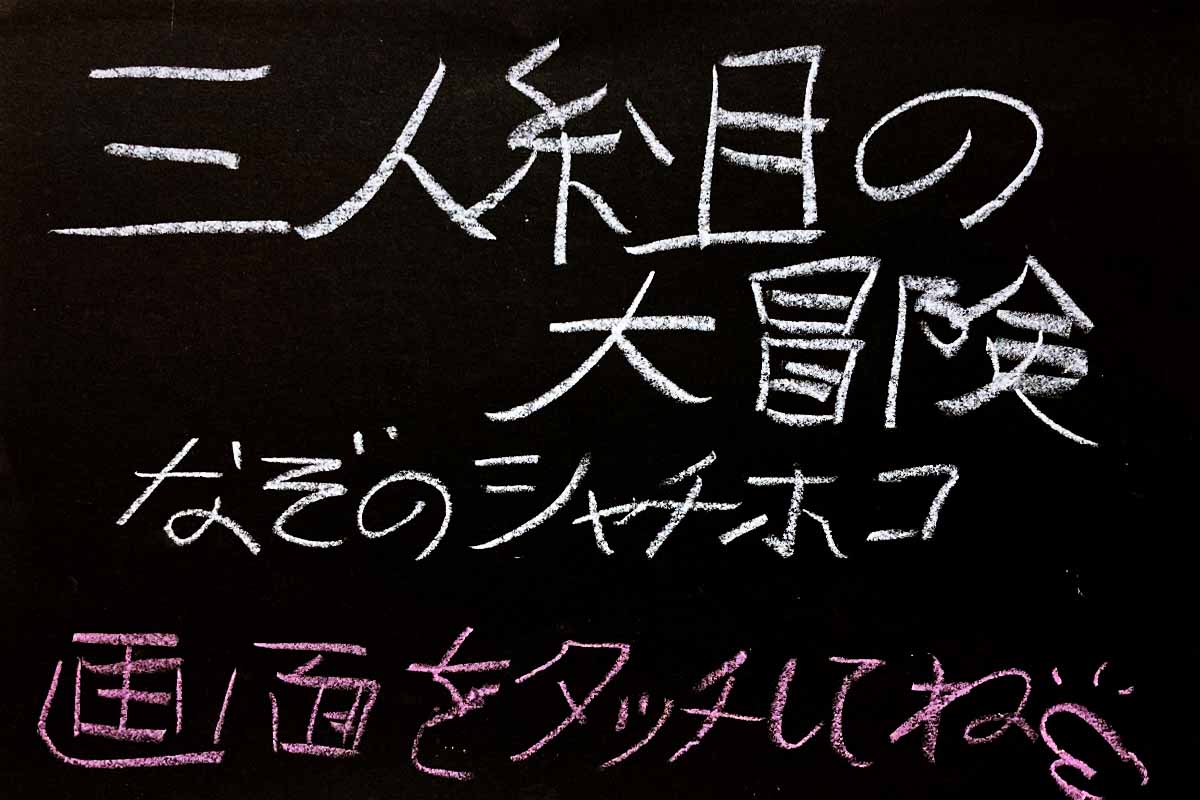 三人組の
大冒険
なぞのシャチホコ
画面をタッチしてね